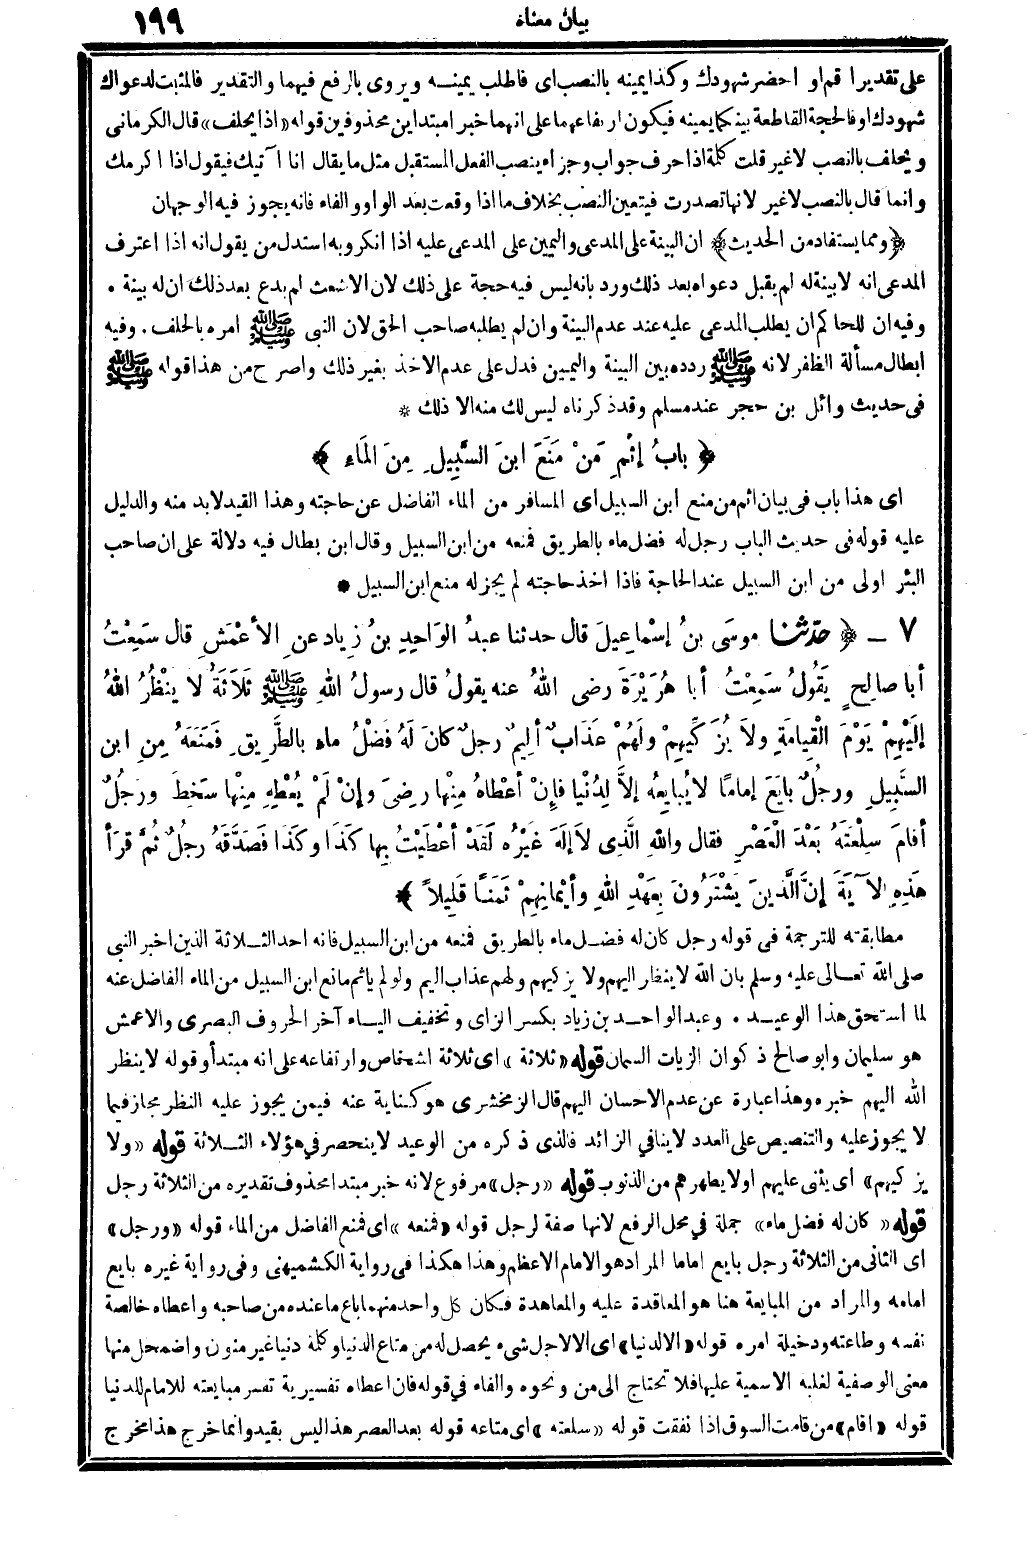 بيان معناه
١٩٩
على تقدير اقم او احضر شهودك وكذا يمينه بالنصب اى فاطلب يمينه ويروى بالرفع فيهما والتقدير فالمثبت لدعواك
شهودك او فالحجة القاطعة بينكما يمينه فيكون ارتفاعهما على انهما خبرا مبتداين محذوفين قوله «اذا يحلف» قال الكرمانى
ويحلف بالنصب لا غير قلت كلمة اذا حرف جواب وجزاء ينصب الفعل المستقبل مثل ما يقال انا آتيك فيقول اذا اكرمك
وانما قال بالنصب لا غير لانها تصدرت فيتعين النصب بخلاف ما اذا وقعت بعد الواو والفاء فانه يجوز فيه الوجهان
﴿ومما يستفاد من الحديث﴾ ان البينة على المدعى واليمين على المدعى عليه اذا انكر وبه استدل من يقول انه اذا اعترف
المدعى انه لا بينة له لم يقبل دعواه بعد ذلك ورد بانه ليس فيه حجة على ذلك لان الاشعث لم يدع بعد ذلك ان له بينة .
وفيه ان للحاكم ان يطلب المدعى عليه عند عدم البينة وان لم يطلبه صاحب الحق لان النبى ﷺ امره بالحلف . وفيه
ابطال مسألة الظفر لانه ﷺ ردده بين البينة واليمين فدل على عدم الاخذ بغير ذلك واصرح من هذا قوله ﷺ
فى حديث وائل بن حجر عند مسلم وقد ذكرناه ليس لك منه الا ذلك *
﴿ بابُ إثْمِ مَنْ مَنَعَ ابنَ السَّبِيلِ مِنَ المَاءِ ﴾
اى هذا باب فى بيان اثم من منع ابن السبيل اى المسافر من الماء الفاضل عن حاجته وهذا القيد لابد منه والدليل
عليه قوله فى حديث الباب رجل له فضل ماء بالطريق فمنعه من ابن السبيل وقال ابن بطال فيه دلالة على ان صاحب
البئر اولى من ابن السبيل عند الحاجة فاذا اخذ حاجته لم يجز له منع ابن السبيل *
٧ ـ ﴿ حدّثنا موسَى بنُ إسْماعِيلَ قال حدثنا عبدُ الوَاحِدِ بنُ زِيادٍ عنِ الأعْمَشِ قال سَمِعْتُ
أبا صالِحٍ يَقُولُ سَمِعْتُ أبا هُرَيْرَةَ رضى اللهُ عنه يقولُ قال رسولُ اللهِ ﷺ ثَلاَثَةٌ لا يَنْظُرُ اللهُ
إلَيْهِمْ يَوْمَ الْقِيامَةِ ولاَ يُزَكِّيهِمْ ولَهُمْ عَذَابٌ أليمٌ رجلٌ كانَ لَهُ فَضْلُ ماءٍ بالطَّرِيقِ فَمَنَعَهُ مِنِ ابنِ
السَّبِيلِ ورجُلٌ بايَعَ إمامًا لا يُبايِعُهُ إلاَّ لِدُنْيا فإنْ أعْطاهُ مِنْها رضِىَ وإنْ لَمْ يُعْطِهِ مِنْها سَخِطَ ورجُلٌ
أقامَ سِلْعَتَهُ بَعْدَ الْعَصْرِ فقال واللهِ الَّذِى لاَ إلَهَ غَيْرُه لَقَدْ أعْطَيْتُ بِها كَذَا وكَذَا فَصَدَّقَهُ رجُلٌ ثُمَّ قرَأَ
هَذِهِ الآيَةَ إنَّ الَّذِينَ يَشْتَرُونَ بِعَهْدِ اللهِ وأيْمانِهِمْ ثَمَنًا قَلِيلاً ﴾
مطابقته للترجمة فى قوله رجل كان له فضل ماء بالطريق فمنعه من ابن السبيل فانه احد الثلاثة الذين اخبر النبى
صلى الله تعالى عليه وسلم بان الله لا ينظر اليهم ولا يزكيهم ولهم عذاب اليم ولو لم ياثم مانع ابن السبيل من الماء الفاضل عنه
لما استحق هذا الوعيد . وعبد الواحد بن زياد بكسر الزاى وتخفيف الياء آخر الحروف البصرى والاعمش
هو سليمان وابو صالح ذكوان الزيات السمان قوله «ثلاثة» اى ثلاثة اشخاص وارتفاعه على انه مبتدأ وقوله لا ينظر
الله اليهم خبره وهذا عبارة عن عدم الاحسان اليهم قال الزمخشرى هو كناية عنه فيمن يجوز عليه النظر مجاز فيما
لا يجوز عليه والتنصيص على العدد لا ينافي الزائد فالذى ذكره من الوعيد لا ينحصر في هؤلاء الثلاثة قوله «ولا
يزكيهم» اى يثنى عليهم او لا يطهرهم من الذنوب قوله «رجل» مرفوع لانه خبر مبتدا محذوف تقديره من الثلاثة رجل
قوله «كان له فضل ماء» جملة في محل الرفع لانها صفة لرجل قوله «فمنعه» اى فمنع الفاضل من الماء قوله «ورجل»
اى الثانى من الثلاثة رجل بايع اماما المراد هو الامام الاعظم وهذا هكذا فى رواية الكشميهنى وفى رواية غيره بايع
امامه والمراد من المبايعة هنا هو المعاقدة عليه والمعاهدة فكان كل واحد منهما باع ما عنده من صاحبه واعطاه خالصة
نفسه وطاعته ودخيلة امره قوله «الا لدنيا» اى الا لاجل شىء يحصل له من متاع الدنيا وكلمة دنيا غير منون واضمحل منها
معنى الوصفية لغلبة الاسمية عليها فلا تحتاج الى من ونحوه والفاء في قوله فان اعطاه تفسيرية تفسر مبايعته للامام للدنيا
قوله «اقام» من قامت السوق اذا نفقت قوله «سلعته» اى متاعه قوله بعد العصر هذا ليس بقيد وانما خرج هذا مخرج